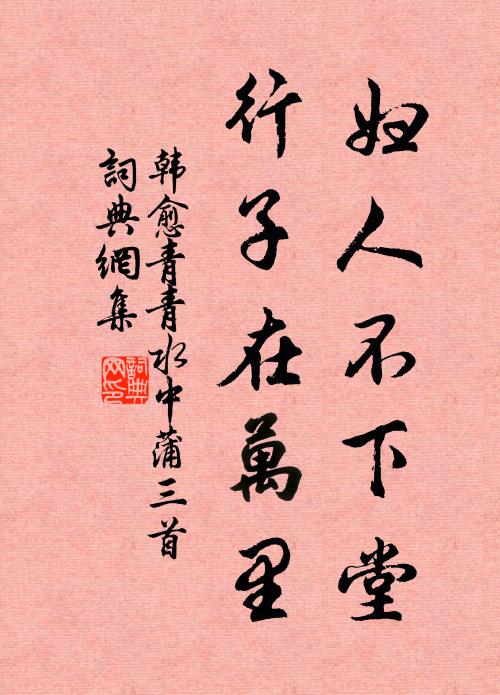 妇人不下堂
行子在萬里
韩愈青青水中蒲三首
詞典網集
詞典网印